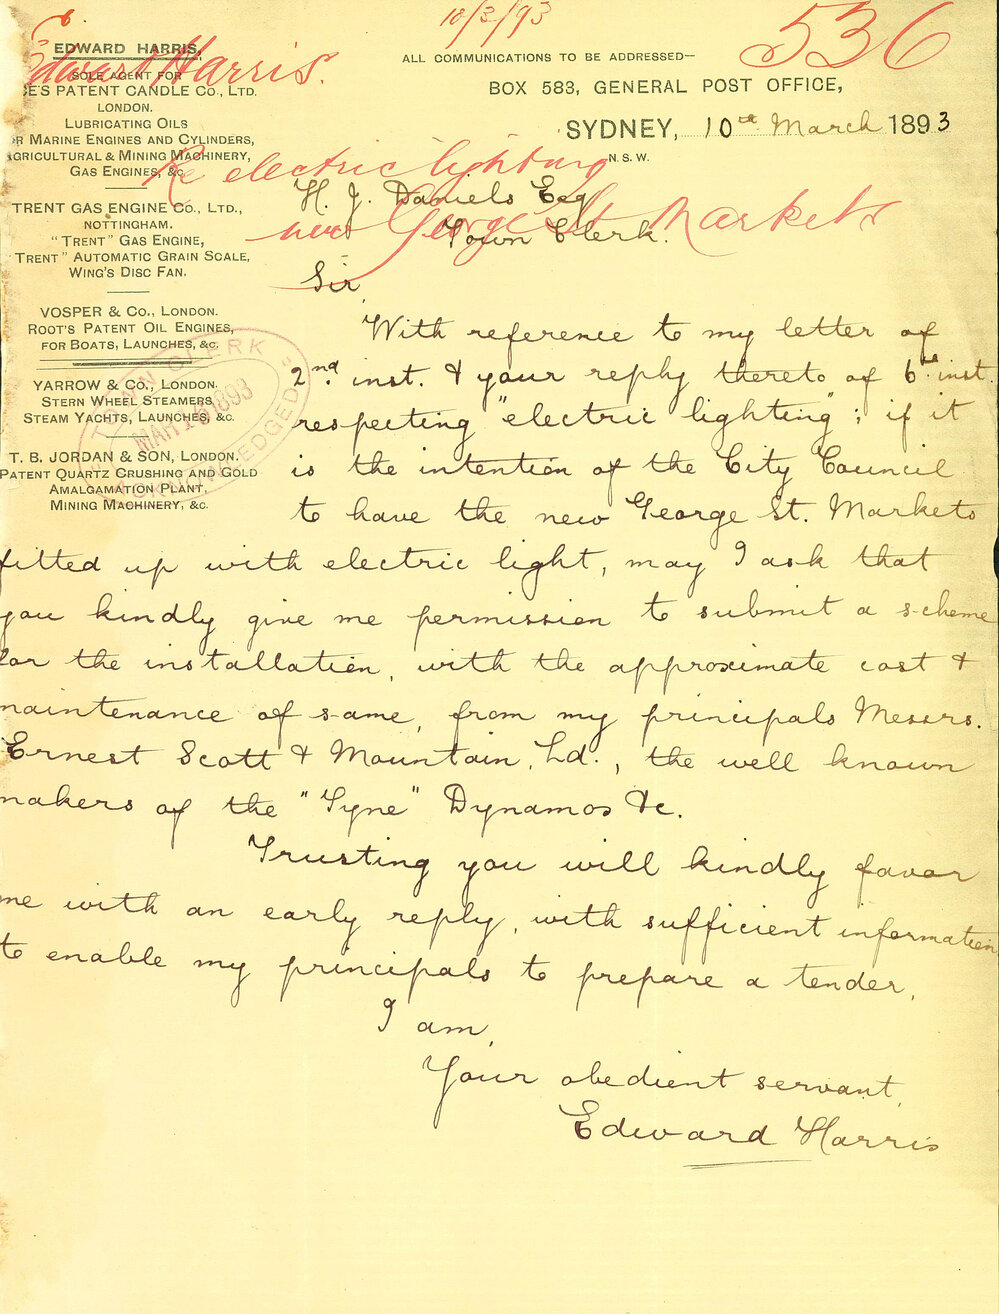 10/3/93
536
Edward Harris.
EDWARD HARRIS,
SOLE AGENT FOR
CE'S PATENT CANDLE CO., LTD.
LONDON.
LUBRICATING OILS
OR MARINE ENGINES AND CYLINDERS,
AGRICULTURAL & MINING MACHINERY,
GAS ENGINES, &c.
TRENT GAS ENGINE CO., LTD.,
NOTTINGHAM.
"TRENT" GAS ENGINE,
"TRENT" AUTOMATIC GRAIN SCALE,
WING'S DISC FAN.
VOSPER & CO., LONDON.
ROOT'S PATENT OIL ENGINES,
FOR BOATS, LAUNCHES, &c.
YARROW & CO., LONDON.
STERN WHEEL STEAMERS
STEAM YACHTS, LAUNCHES, &c.
T. B. JORDAN & SON, LONDON.
PATENT QUARTZ CRUSHING AND GOLD
AMALGAMATION PLANT,
MINING MACHINERY, &c.
TOWN CLERK
MAR 10 1893
ACKNOWLEDGED
ALL COMMUNICATIONS TO BE ADDRESSED—
BOX 583, GENERAL POST OFFICE,
SYDNEY, 10th March 1893
N.S.W.
Re electric lighting
new George St Markets
H. J. Daniels Esq
Town Clerk.
Sir
With reference to my letter of
2nd. inst. & your reply thereto of 6th inst.
respecting "electric lighting"; if it
is the intention of the City Council
to have the new George St. Markets
fitted up with electric light, may I ask that
you kindly give me permission to submit a scheme
for the installation, with the approximate cost &
maintenance of same, from my principals Messrs.
Ernest Scott & Mountain, Ld., the well known
makers of the "Tyne" Dynamos &c.
Trusting you will kindly favor
me with an early reply, with sufficient information
to enable my principals to prepare a tender,
I am,
Your obedient servant,
Edward Harris